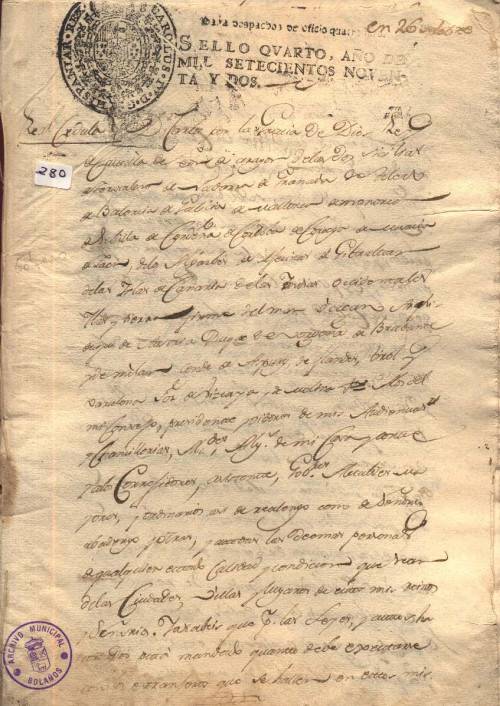 PARA DESPACHOS DE OFICIO QUA
en 26
CAROLUS IV D G HISPANIAR REX
SELLO QVARTO, AÑO DE
MIL SETECIENTOS NOVEN-
TA Y DOS.
Real Cedula D. Carlos con la Gracia de Dios Rey
280
de Castilla de de Aragon de las dos Sicilias
de Jerusalem de Navarra de Granada de Toledo
de Valencia de Galicia de Mallorca de Menorca
de Sevilla de Cerdeña de Cordoba de Corcega de Murcia
de Jaen, de los Algarbes de Algeciras de Gibraltar
de las Islas de Canaria de las Indias Occidentales
Islas y tierra firme del mar Occeano Archi
duque de Austria Duque de Borgoña de Brabante
y de Milan Conde de Aspurg de flandes, tirol y
Barcelona Sor de Vizcaya y de Molina A los del
mi Consejo, presidente y oidores de mis Audiencias
y Chancillerias, Alguaciles de mi Casa y corte
y a los Corregidores, Asistente, Gobres Alcaldes ma
yores, y ordinarios asi de realengo como de Señorio
abadengo y otras, y a todas las demas personas
de qualquier estado Calidad y condicion que sean
de las Ciudades, Villas y lugares de estos mis reinos
y Señorios. Sabeis que p. las Leyes, y
esta mandado quanto debe
extranjeros que se hallen en estos mis
ARCHIVO MUNICIPAL
BOLAÑOS